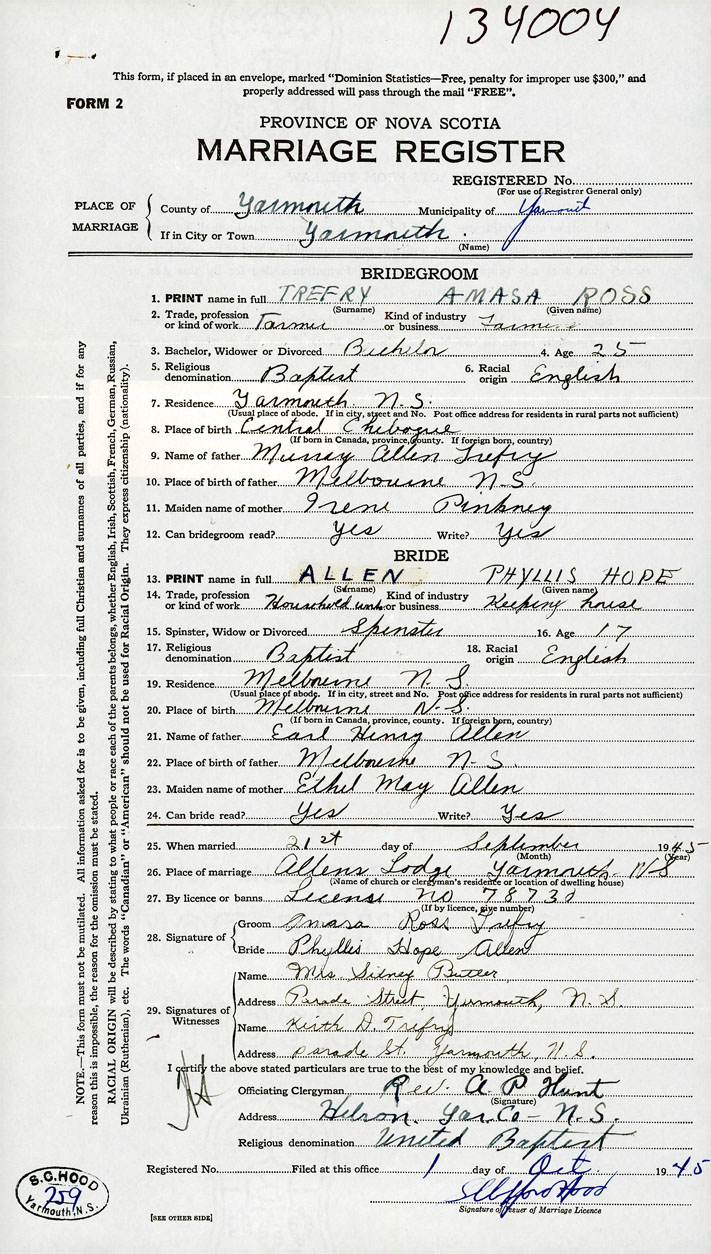 134004
This form, if placed in an envelope, marked "Dominion Statistics—Free, penalty for improper use $300," and
properly addressed will pass through the mail "FREE".
FORM 2
PROVINCE OF NOVA SCOTIA
MARRIAGE REGISTER
REGISTERED No.
(For use of Registrar General only)
PLACE OF MARRIAGE
County of Yarmouth Municipality of Yarmouth
If in City or Town Yarmouth
(Name)
BRIDEGROOM
1. PRINT name in full TREFRY AMASA ROSS
(Surname) (Given name)
2. Trade, profession or kind of work Farmer Kind of industry or business Farming
3. Bachelor, Widower or Divorced Bachelor 4. Age 25
5. Religious denomination Baptist 6. Racial origin English
7. Residence Yarmouth N.S.
(Usual place of abode. If in city, street and No. Post office address for residents in rural parts not sufficient)
8. Place of birth Central Chebogue
(If born in Canada, province, county. If foreign born, country)
9. Name of father Murray Allen Trefry
10. Place of birth of father Melbourne N.S.
11. Maiden name of mother Irene Pinkney
12. Can bridegroom read? Yes Write? Yes
BRIDE
13. PRINT name in full ALLEN PHYLLIS HOPE
(Surname) (Given name)
14. Trade, profession or kind of work Household work Kind of industry or business Keeping house
15. Spinster, Widow or Divorced Spinster 16. Age 17
17. Religious denomination Baptist 18. Racial origin English
19. Residence Melbourne N.S.
(Usual place of abode. If in city, street and No. Post office address for residents in rural parts not sufficient)
20. Place of birth Melbourne N.S.
(If born in Canada, province, county. If foreign born, country)
21. Name of father Earl Henry Allen
22. Place of birth of father Melbourne N.S.
23. Maiden name of mother Ethel May Allen
24. Can bride read? Yes Write? Yes
25. When married 21st day of September 1945
(Month) (Year)
26. Place of marriage Allens Lodge Yarmouth N S
(Name of church or clergyman's residence or location of dwelling house)
27. By licence or banns License no
(If by licence, give number)
28. Signature of
Groom Amasa Ross Trefry
Bride Phyllis Hope Allen
29. Signatures of Witnesses
Name Mrs Sidney Butler
Address Parade Street Yarmouth, N.S.
Name Keith D. Trefry
Address Parade St. Yarmouth, N.S.
I certify the above stated particulars are true to the best of my knowledge and belief.
Officiating Clergyman Rev. A P Hunt
(Signature)
Address Yar. Co - N.S.
Religious denomination United Baptist
Registered No. Filed at this office 1 day of Oct 1945
Signature of Issuer of Marriage Licence
[SEE OTHER SIDE]
S.C. HOOD
259
Yarmouth, N.S.
NOTE.—This form must not be mutilated. All information asked for is to be given, including full Christian and surnames of all parties, and if for any
reason this is impossible, the reason for the omission must be stated.
RACIAL ORIGIN will be described by stating to what people or race each of the parents belongs, whether English, Irish, Scottish, French, German Russian,
Ukrainian (Ruthenian), etc. The words "Canadian" or "American" should not be used for Racial Origin. They express citizenship (nationality).